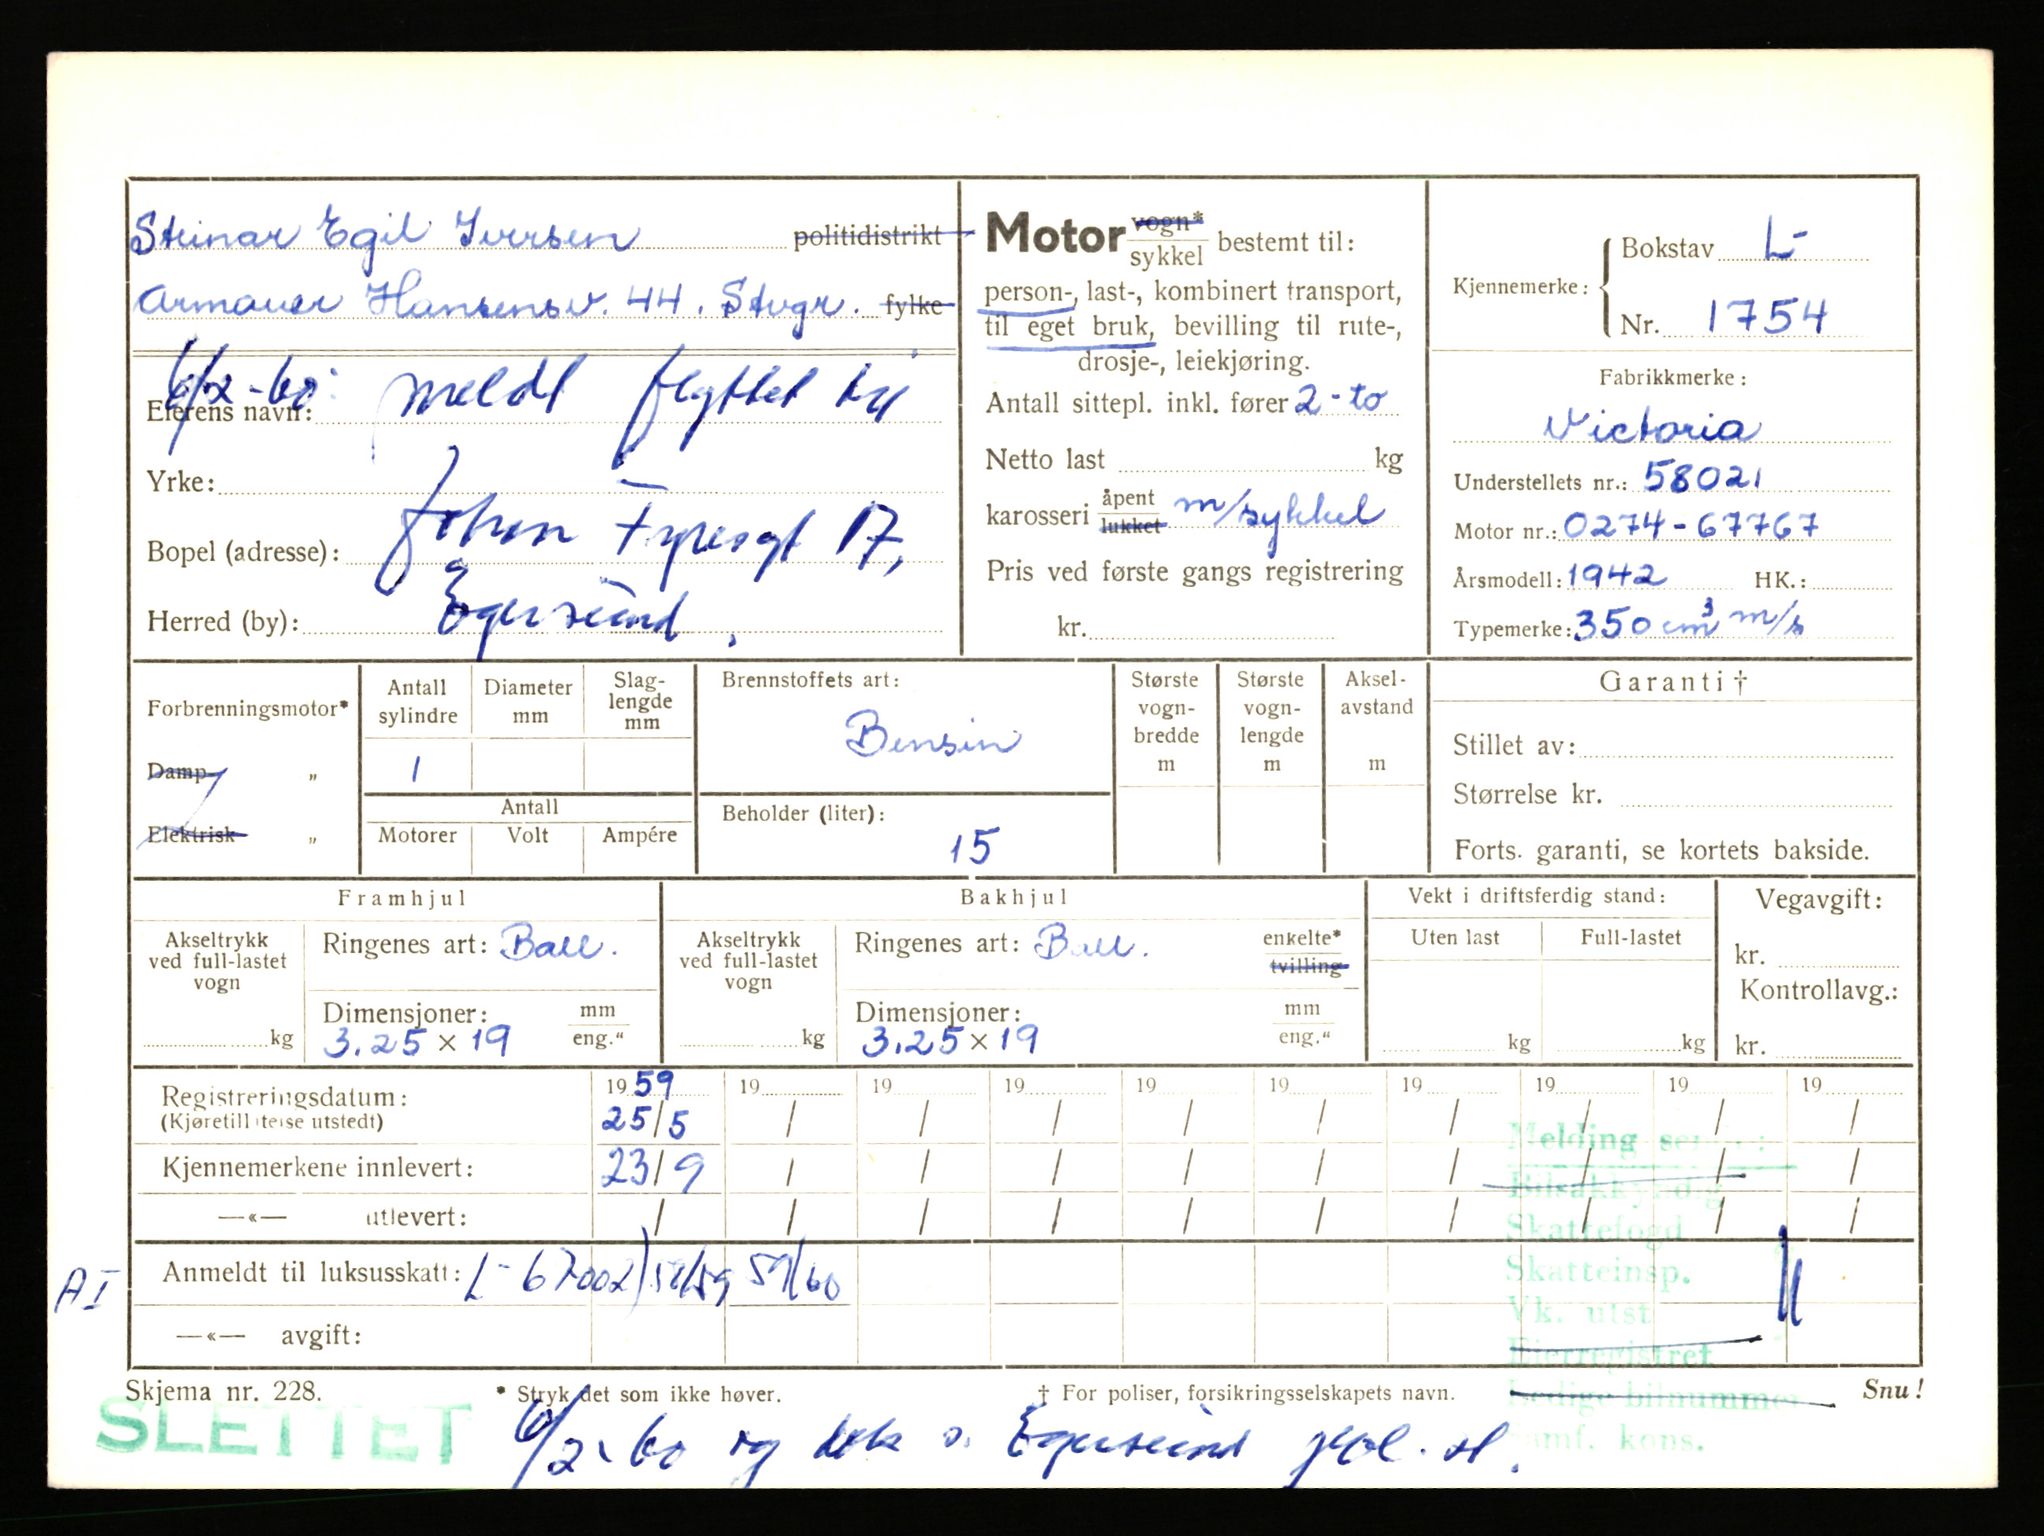 Steinar Egil Iversen politidistrikt
Armauer Hansensv. 44. Stvgr. fylke
6/2-60: meldt flyttet til
Eierens navn:
Yrke:
Johan Fyresgt 17,
Bopel (adresse):
Herred (by): Egersund.
Motor vogn* sykkel bestemt til:
person-, last-, kombinert transport,
til eget bruk, bevilling til rute-,
drosje-, leiekjøring.
Antall sittepl. inkl. fører 2-to
Netto last kg
karosseri åpent lukket m/sykkel
Pris ved første gangs registrering
kr.
Kjennemerke: Bokstav L-
Nr. 1754
Fabrikkmerke:
Victoria
Understellets nr.: 58021
Motor nr.: 0274-67767
Årsmodell: 1942 HK.:
Typemerke: 350 cm³ m/s
Forbrenningsmotor*
Damp „
Elektrisk „
Antall sylindre
Diameter mm
Slag-
lengde
mm
1
Antall
Motorer Volt Ampére
Brennstoffets art:
Bensin
Beholder (liter):
15
Største
vogn-
bredde
m
Største
vogn-
lengde
m
Aksel-
avstand
m
Garanti †
Stillet av:
Størrelse kr.
Forts. garanti, se kortets bakside.
Framhjul
Akseltrykk
ved full-lastet
vogn
kg
Ringenes art: Ball.
Dimensjoner: mm
3.25 × 19 eng."
Bakhjul
Akseltrykk
ved full-lastet
vogn
kg
Ringenes art: Ball. enkelte*
tvilling
Dimensjoner: mm
3.25 × 19 eng."
Vekt i driftsferdig stand:
Uten last Full-lastet
kg kg
Vegavgift:
kr.
Kontrollavg.:
kr.
Registreringsdatum: 19 59 19 19 19 19 19 19 19 19 19
(Kjøretillatelse utstedt) 25/5 / / / / / / / / /
Kjennemerkene innlevert: 23/9 / / / / / / / / /
—«— utlevert: / / / / / / / / / /
Anmeldt til luksusskatt: L-67002) 58/59 59/60
AI
—«— avgift:
Melding se
Bilsakkyndig
Skattefogd
Skatteinsp.
Vk. utst
Eierregistret
Ledige bilnummer
amf. kons.
Skjema nr. 228. * Stryk det som ikke høver. † For poliser, forsikringsselskapets navn. Snu!
SLETTET
6/2-60 og Egersund